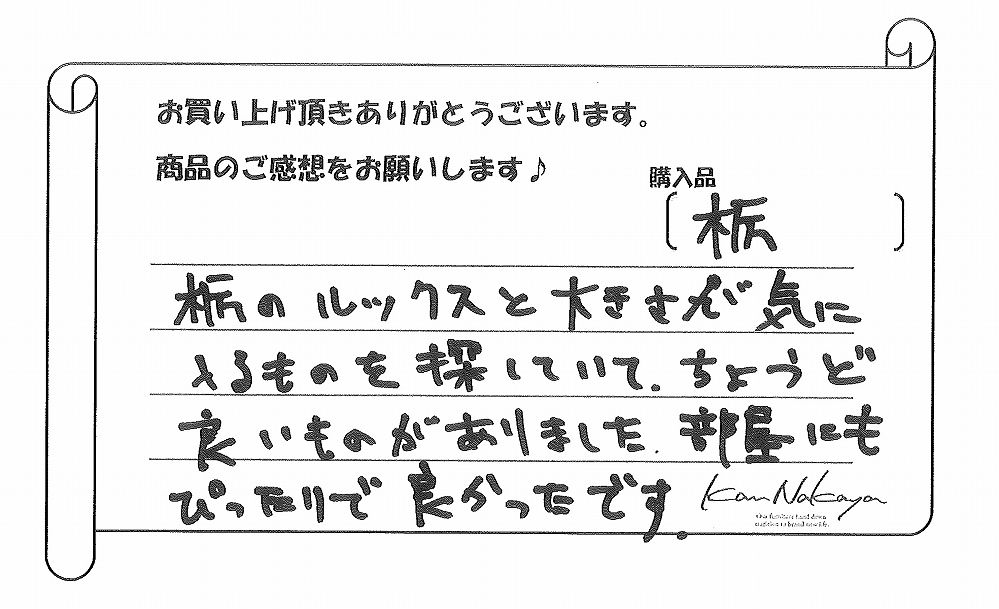 お買い上げ頂きありがとうございます。
商品のご感想をお願いします♪
購入品
栃
栃のルックスと大きさが気に
入るものを探していて、ちょうど
良いものがありました。部屋にも
ぴったりで良かったです。
Kan Nakaya